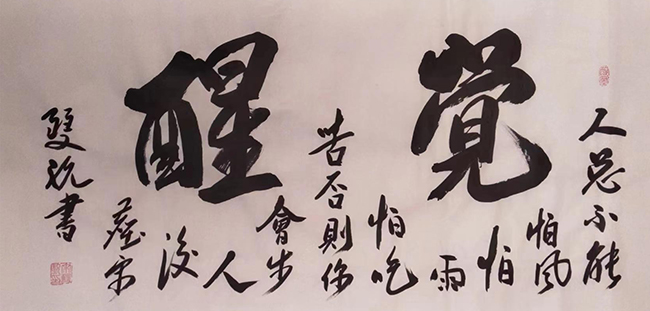 覺醒
人总不能
怕風
怕
雨
怕吃
苦否則你
會步
人
後
塵宋
雙書